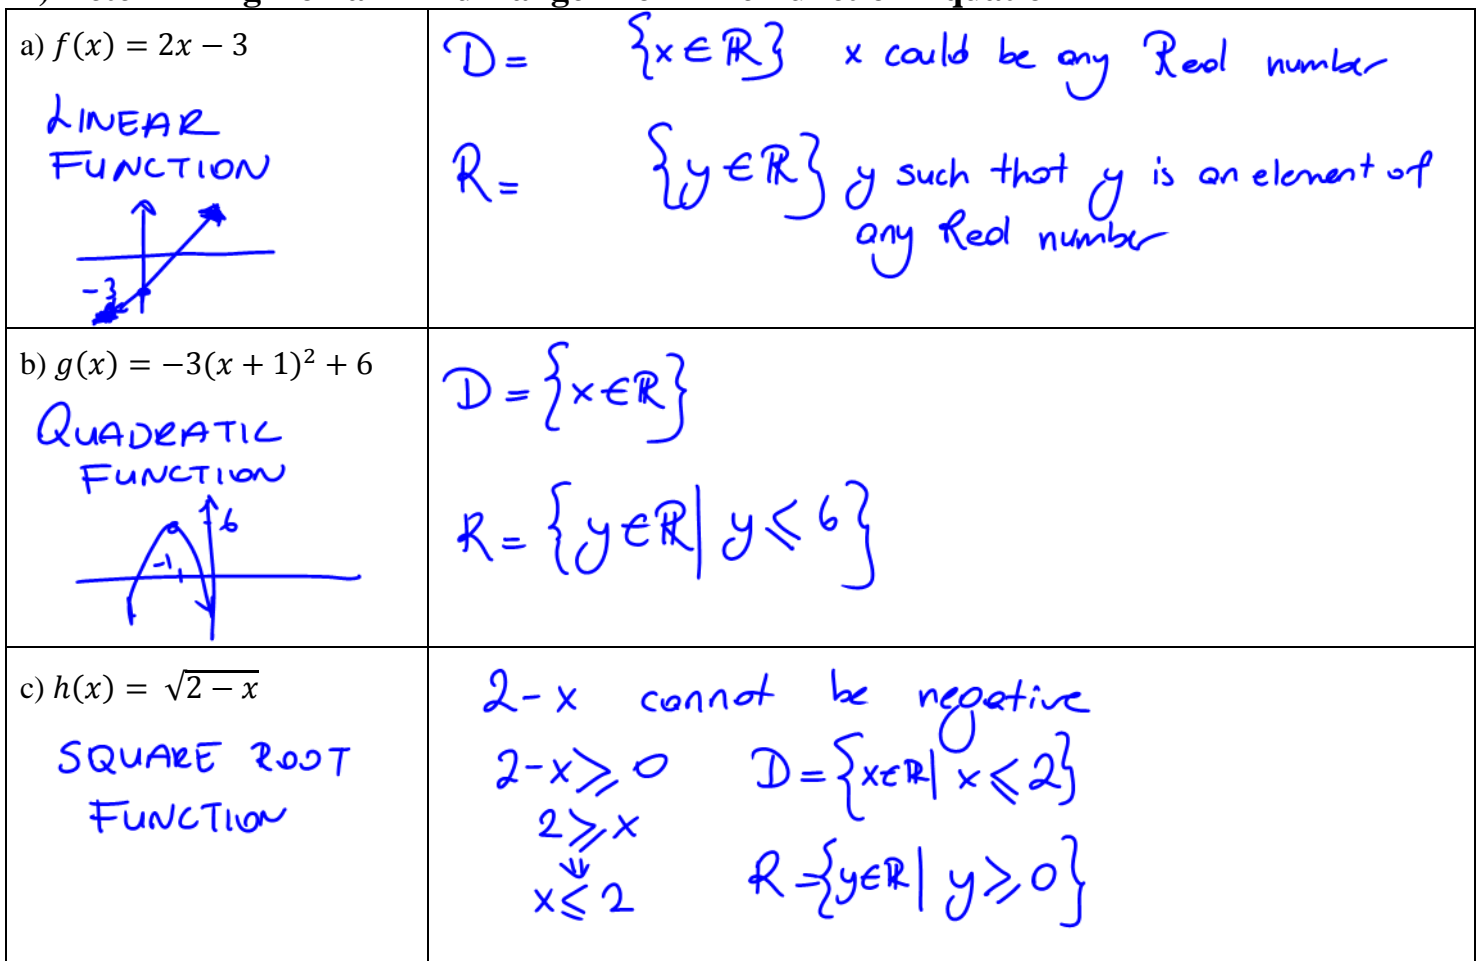 a) f(x) = 2x − 3
LINEAR
FUNCTION
-3
D = {x∈ℝ} x could be any Real number
R = {y∈ℝ} y such that y is an element of
any Real number
b) g(x) = −3(x + 1)² + 6
QUADRATIC
FUNCTION
6
-1
D = {x∈ℝ}
R = {y∈ℝ| y⩽6}
c) h(x) = √(2 − x)
SQUARE ROOT
FUNCTION
2-x cannot be negative
2-x⩾0 D = {x∈ℝ| x⩽2}
2⩾x
⇓
x⩽2 R = {y∈ℝ| y⩾0}